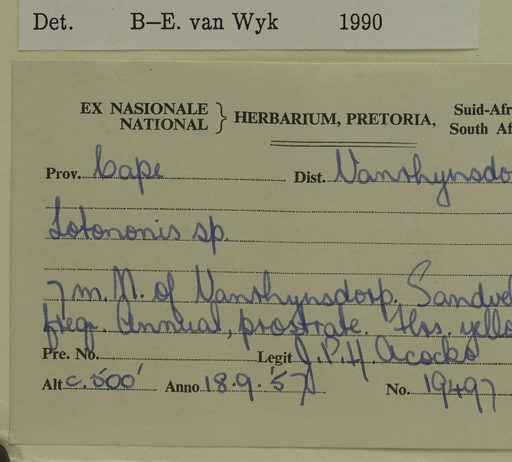 Det. B–E. van Wyk 1990
EX NASIONALE
NATIONAL } HERBARIUM, PRETORIA, Suid-Afr
South Af
Prov. Cape Dist. Vanrhynsdo
Lotononis sp.
7 m. N. of Vanrhynsdorp. Sandve
freq. Annual, prostrate. Flrs. yello
Pre. No. Legit J.P.H Acocks
Alt c. 500' Anno 18.9.'57 No. 19497